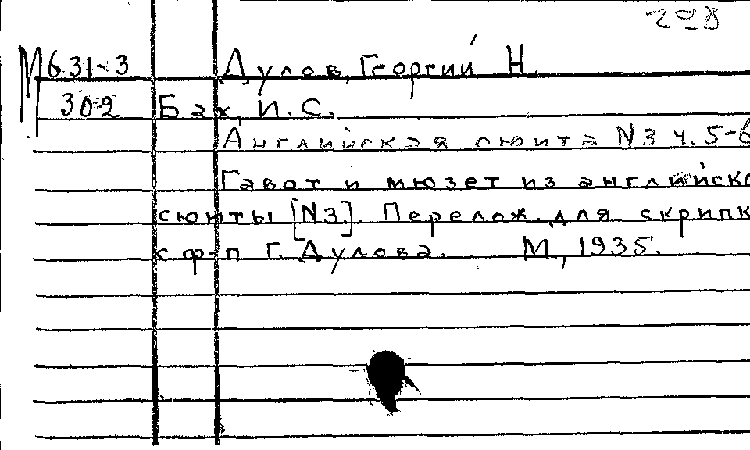 228
М631-3 Дулов, Георгий Н.
302 Бах, И.С.
Английская сюита N3 ч.5-6
Гавот и мюзет из английско
сюиты [N3]. Перелож. для скрипк
с ф-п Г. Дулова. М., 1935.